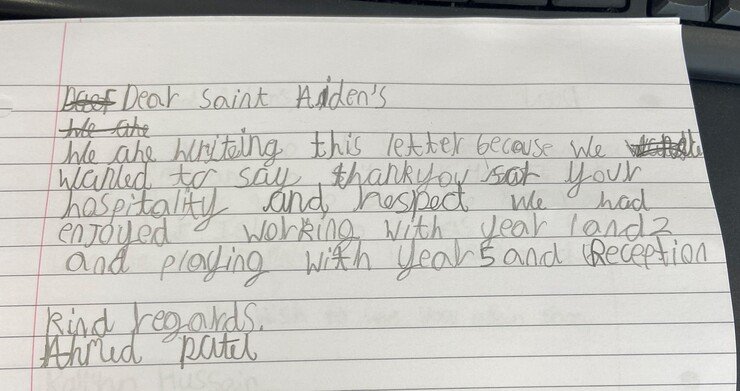 Dear Saint Aiden's
We are
We are writing this letter because we
wanted to say thankyou for your
hospitality and respect we had
enjoyed working with year 1 and 2
and playing with year 5 and Reception
Kind regards.
Ahmed Patel